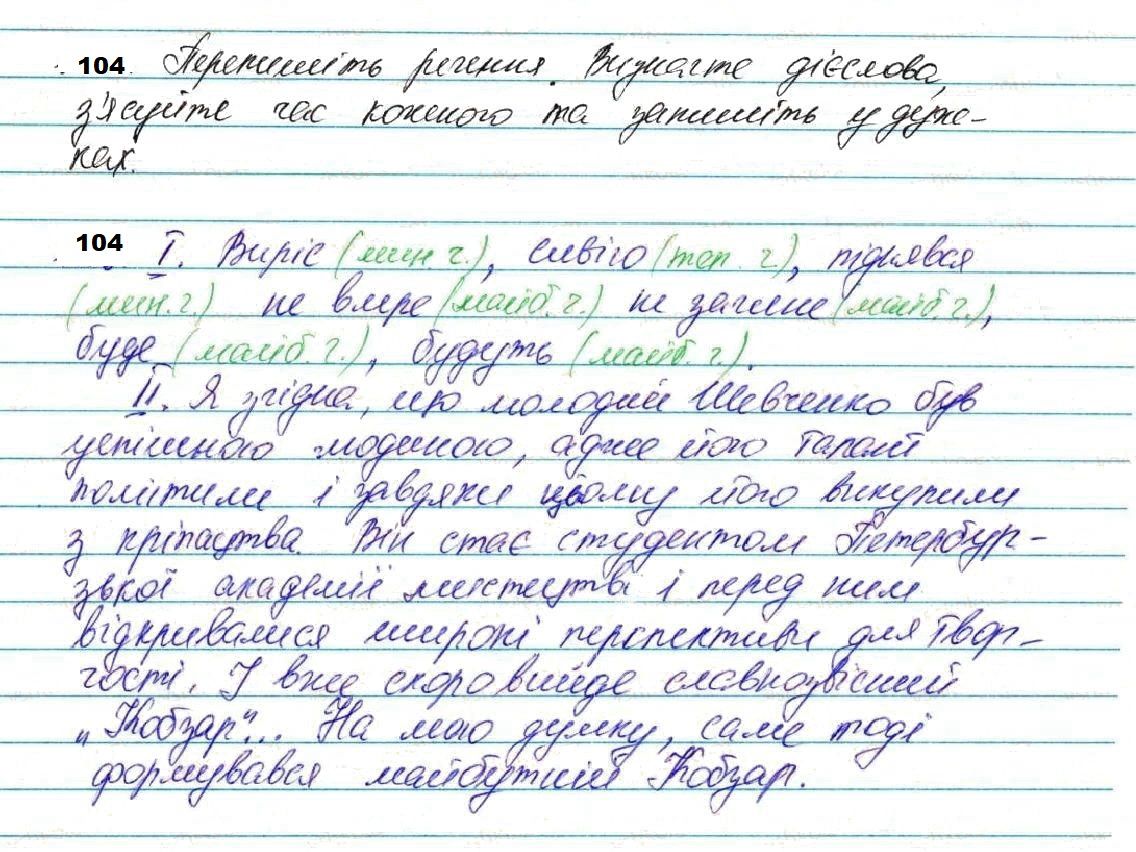 104 Перепишіть речення. Визначте дієслова,
з'ясуйте час кожного та запишіть у дуж-
ках.
104 І. Виріс (мин ч.), сивіго (теп. ч.), піднявся
(мин. ч.) не вмре (майб. ч.) не загине (майб. ч.),
буде (майб. ч.), будуть (майб. ч.).
ІІ. Я згідна, що молодий Шевченко був
успішною людиною, адже його талант
помітили і завдяки цьому його викупили
з кріпацтва. Він стає студентом Петербур-
зької академії мистецтв і перед ним
відкривалися широкі перспективи для твор-
чості. І вже скоро вийде славнозвісний
„Кобзар"... На мою думку, саме тоді
формувався майбутній Кобзар.